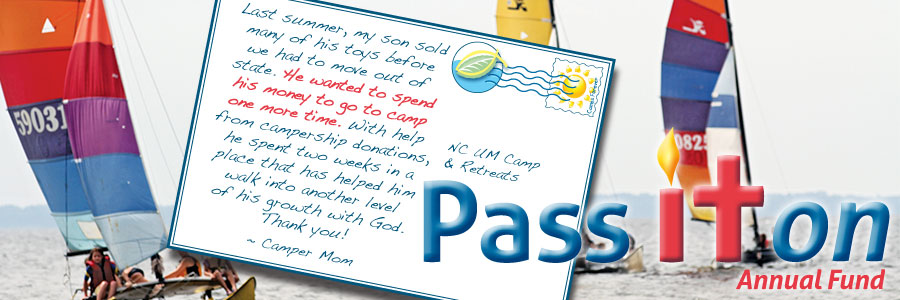 59031
Last summer, my son sold
many of his toys before
we had to move out of
state. He wanted to spend
his money to go to camp
one more time. With help
from campership donations,
he spent two weeks in a
place that has helped him
walk into another level
of his growth with God.
Thank you!
~ Camper Mom
NC UM Camp
& Retreats
0825
Pass it on
Annual Fund